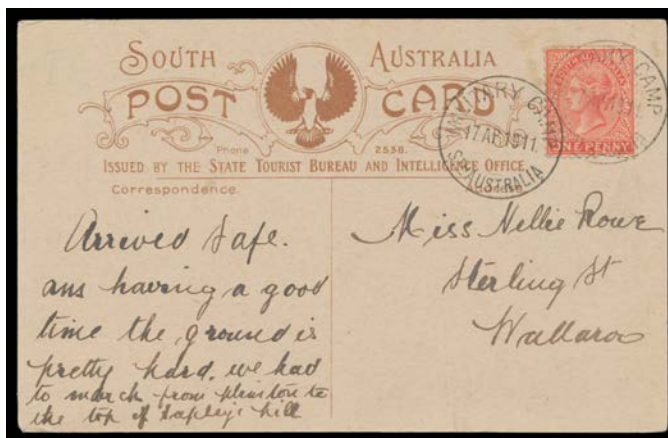 SOUTH AUSTRALIA
POST CARD
Phone 2538.
ISSUED BY THE STATE TOURIST BUREAU AND INTELLIGENCE OFFICE
Correspondence.
MILITARY CAMP
17 AP 1911
STH AUSTRALIA
SOUTH AUSTRALIA
ONE PENNY
Arrived safe.
ans having a good
time the ground is
pretty hard. we had
to march from plimston to
the top of tapleys hill
Miss Nellie Rowe
Sterling St
Wallaroo